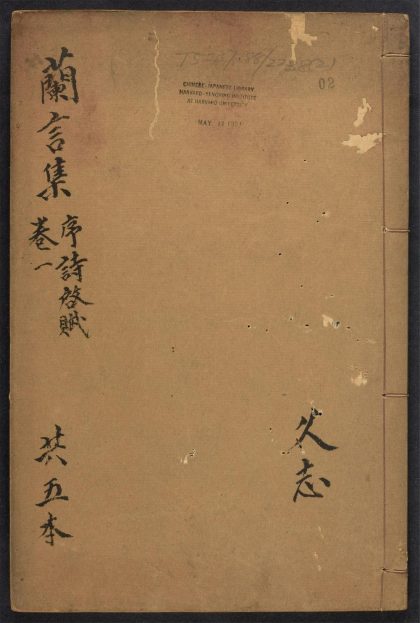 02
CHINESE-JAPANESE LIBRARY
HARVARD-YENCHING INSTITUTE
AT HARVARD UNIVERSITY
MAY
久志
蘭言集
序詩啓賦
卷一
共五本